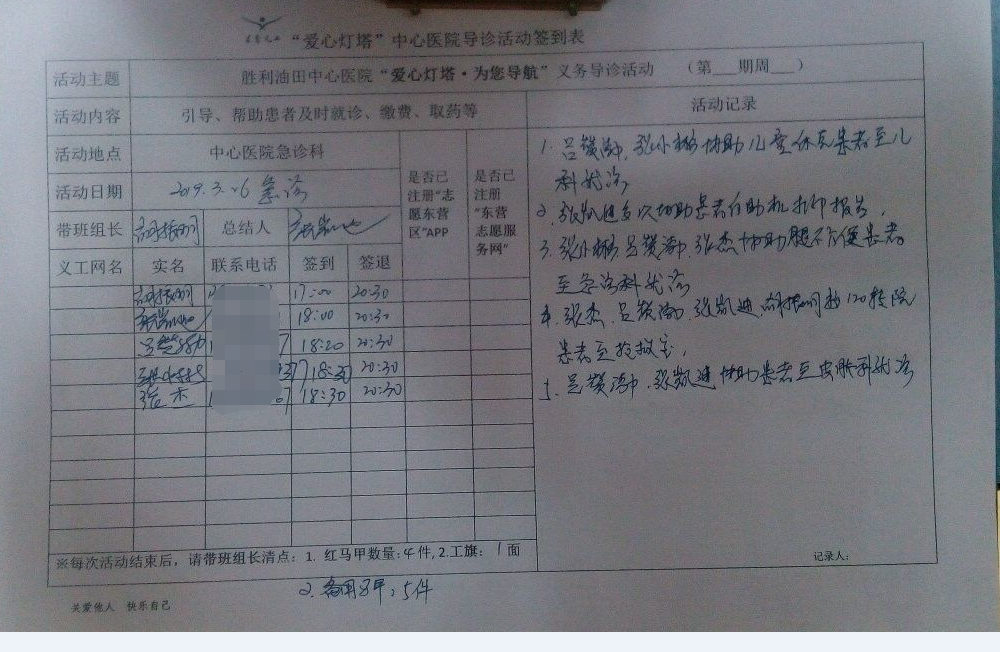 “爱心灯塔”中心医院导诊活动签到表
活动主题 胜利油田中心医院“爱心灯塔·为您导航”义务导诊活动 （第___期周___）
活动内容 引导、帮助患者及时就诊、缴费、取药等 活动记录
活动地点 中心医院急诊科 是否已注册“志愿东营区”APP 是否已注册“东营志愿服务网”
活动日期 2019.3.26 急诊
带班组长 总结人
义工网名 实名 联系电话 签到 签退
17:00 20:30
18:00 20:30
7 18:20 20:30
37 18:30 20:30
张杰 1 7 18:30 20:30
1. 张小彬协助儿童休克患者至儿
科就诊
2. 张凯迪多次协助患者自助机打印报告.
3. 张小彬 张杰协助腿不方便患者
至急诊科就诊
4. 张杰 张凯迪 120转院
患者至抢救室.
5. 张凯迪协助患者至皮肤科就诊
※每次活动结束后，请带班组长清点：1. 红马甲数量:4件,2.工旗：1面
记录人：
2. 备用马甲:5件
关爱他人 快乐自己